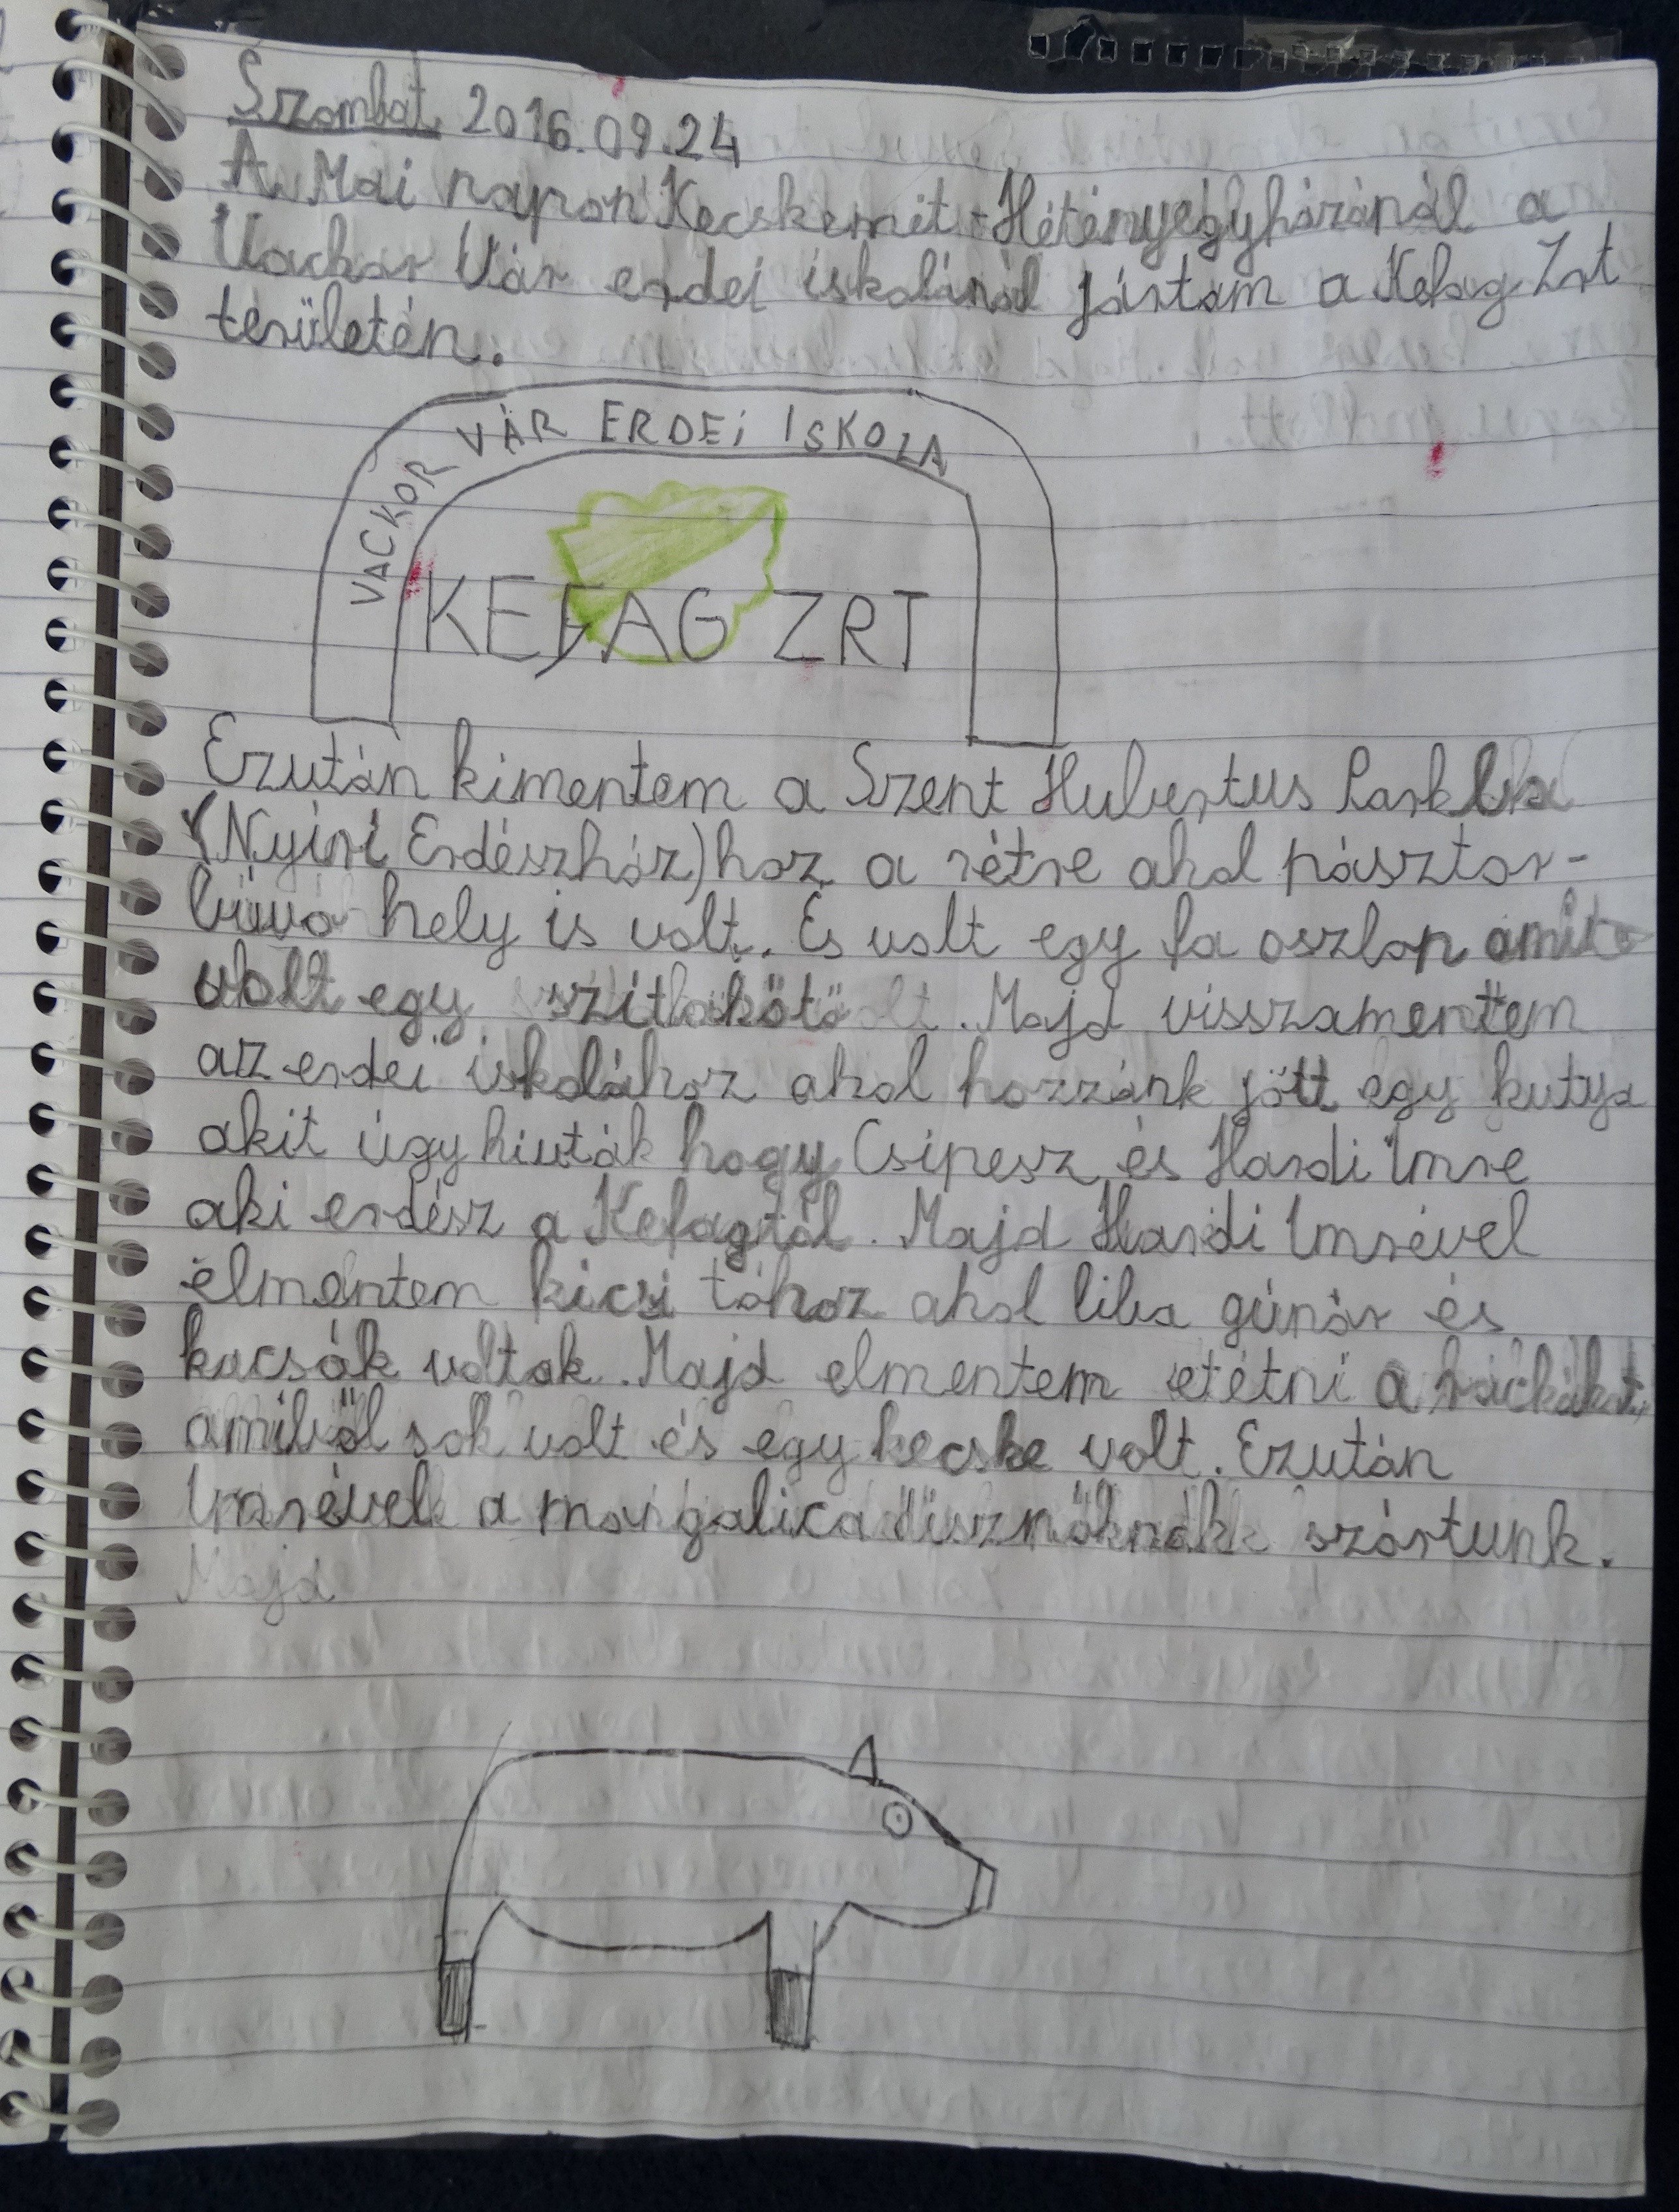 Szombat 2016.09.24
A Mai napon Kecskemét-Hétényegyházánál a
Vackor Vár erdei iskolánál jártam a Kefag Zrt
területén.
VACKOR VÁR ERDEi ISKOLA
KEFAG ZRT
Ezután kimentem a Szent Hubertus Parkba
(Nyíri Erdészház)hoz a rétre ahol pásztor-
búvó hely is volt. És volt egy fa oszlop
volt egy szitakötő. Majd visszamentem
az erdei iskolához ahol hozzánk jött egy kutya
akit úgy hívták hogy Csipesz és Hardi Imre
aki erdész a Kefagtól. Majd Hardi Imrével
elmentem kicsi tóhoz ahol liba gúnár és
kacsák voltak. Majd elmentem etétni a
amiből sok volt és egy kecske volt. Ezután
Imrével a mangalica disznóknak szórtunk.
Majd